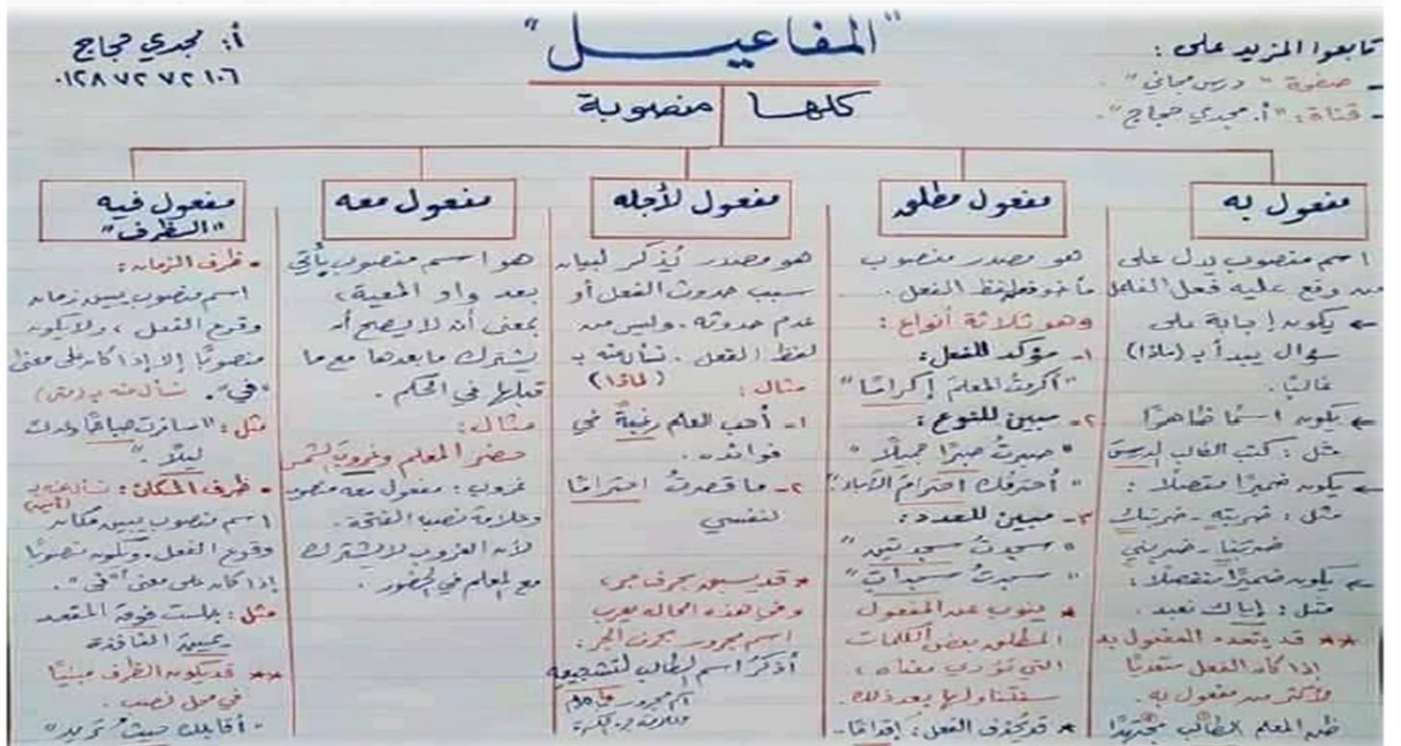 "المفاعيل"
كلها منصوبة
تابعوا المزيد على :
- صفوة " درس مجاني ".
- قناة : "أ. مجدي حجاج".
أ: مجدي حجاج
٠١٢٨ ٧٢ ٧٢ ١٠٦
مفعول به
اسم منصوب يدل على
من وقع عليه فعل الفاعل
← يكون إجابة على
سؤال يبدأ بـ (ماذا)
غالبًا.
← يكون اسمًا ظاهرًا
مثل : كتب الطالب الدرسَ
← يكون ضميرًا متصلًا :
مثل : ضربته - ضربتك
ضربنا - ضربني
← يكون ضميرًا منفصلًا :
مثل : إياك نعبد .
** قد يتعدد المفعول به
إذا كان الفعل متعديًا
لأكثر من مفعول به .
ظن المعلم الطالب مجتهدًا
مفعول مطلق
هو مصدر منصوب
مأخوذ من لفظ الفعل .
وهو ثلاثة أنواع :
١- مؤكد للفعل :
"أكرمتُ المعلمَ إكرامًا"
٢- مبين للنوع :
" صبرتُ صبرًا جميلًا "
" أحترمك احترامَ
٣- مبين للعدد :
" سجدتُ سجدتين "
" سجدتُ سجداتٍ "
* ينوب عن المفعول
المطلق بعض الكلمات
التي تؤدي معناه ،
سنتناولها بعد ذلك .
* قد يُحذف الفعل : إقدامًا-
مفعول لأجله
هو مصدر يُذكر لبيان
سبب حدوث الفعل أو
عدم حدوثه . وليس من
لفظ الفعل . نسأل عنه بـ
(لماذا)
مثال :
١- أحب العلم رغبةً في
فوائده .
٢- ما قصدتُ احترامًا
لنفسي
* قد يسبق بحرف جر ،
وفي هذه الحالة يعرب
اسم مجرور بحرف الجر :
أذكرُ اسم الطالب لتشجيعه
اسم مجرور
مفعول معه
هو اسم منصوب يأتي
بعد واو المعية ،
بمعنى أنه لا يصح أن
يشترك ما بعدها مع ما
قبلها في الحكم .
مثال :
حضر المعلم وغروبَ الشمس
غروب : مفعول معه منصوب
وعلامة نصبه الفتحة .
لأن الغروب لا يشترك
مع المعلم في الحضور .
مفعول فيه
"الظرف"
• ظرف الزمان :
اسم منصوب يبين زمان
وقوع الفعل ، ولا يكون
منصوبًا إلا إذا كان على معنى
"في". نسأل عنه بـ (متى)
مثل : "سافرت صباحًا وعدت
ليلًا ."
• ظرف المكان : نسأل عنه بـ
(أين)
اسم منصوب يبين مكان
وقوع الفعل . ويكون منصوبًا
إذا كان على معنى "في".
مثل : جلست فوق المقعد
يمينَ النافذة
** قد يكون الظرف مبنيًا
في محل نصب .
"أقابلك حيثُ تريد"